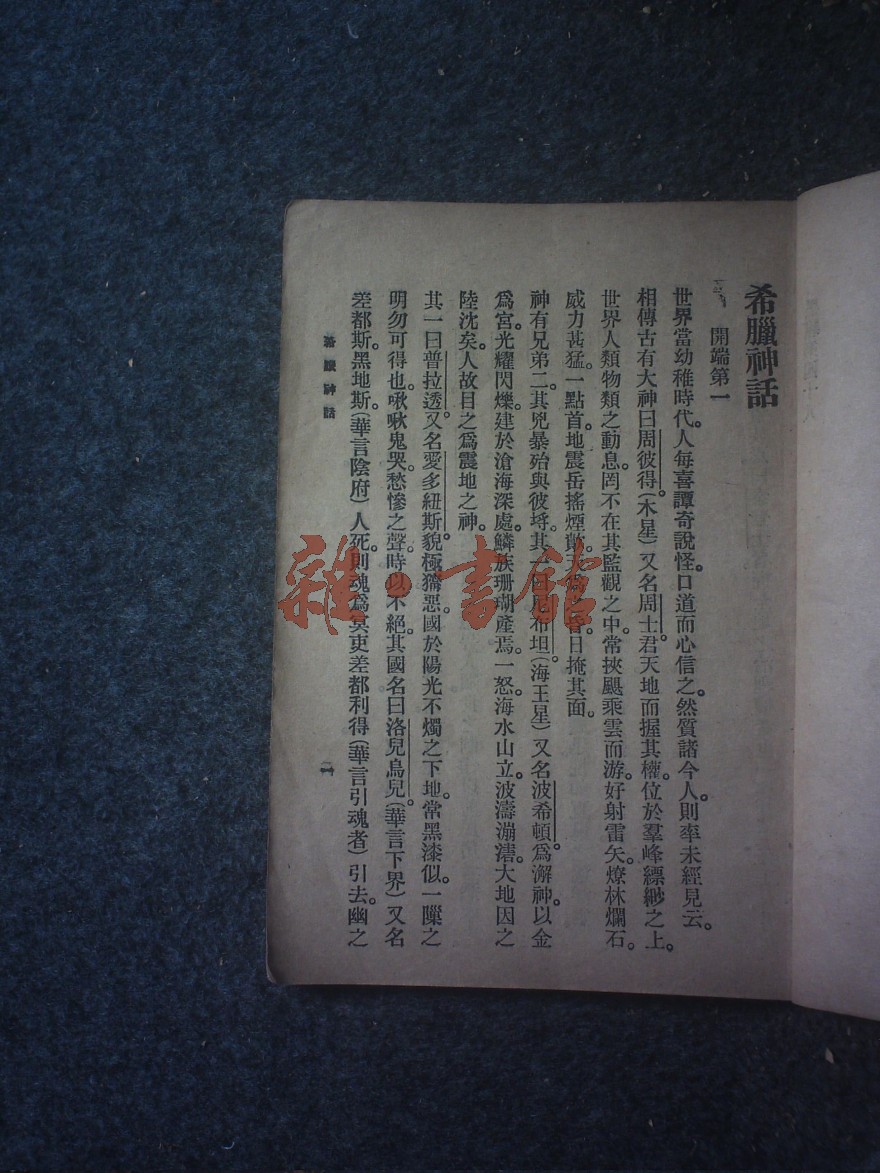 希臘神話
開端第一
世界當幼稚時代。人每喜譚奇說怪。口道而心信之。然質諸今人。則率未經見云。
相傳古有大神曰周彼得。(木星)又名周士。君天地而握其權。位於羣峰縹緲之上。
世界人類物類之動息。罔不在其監觀之中。常挾颶乘雲而游。好射雷矢。燎林爛石。
威力甚猛。一點首。地震岳搖。煙 昏。日掩其面。
神有兄弟二。其兇暴殆與彼埒。其 曰尼布坦。(海王星)又名波希頓。爲澥神。以金
爲宮。光耀閃爍。建於滄海深處。鱗族珊瑚產焉。一怒。海水山立。波濤漰濞。大地因之
陸沈矣。人故目之爲震地之神。
其一曰普拉透。又名愛多紐斯。貌極獰惡。國於陽光不燭之下地。常黑漆似。一隟之
明勿可得也。啾啾鬼哭。愁慘之聲。時以不絕。其國名曰洛兒鳥兒。(華言下界)又名
差都斯。黑地斯。(華言陰府)人死。則魂爲冥吏差都利得(華言引魂者)引去。幽之
希臘神話
一
雜·書館